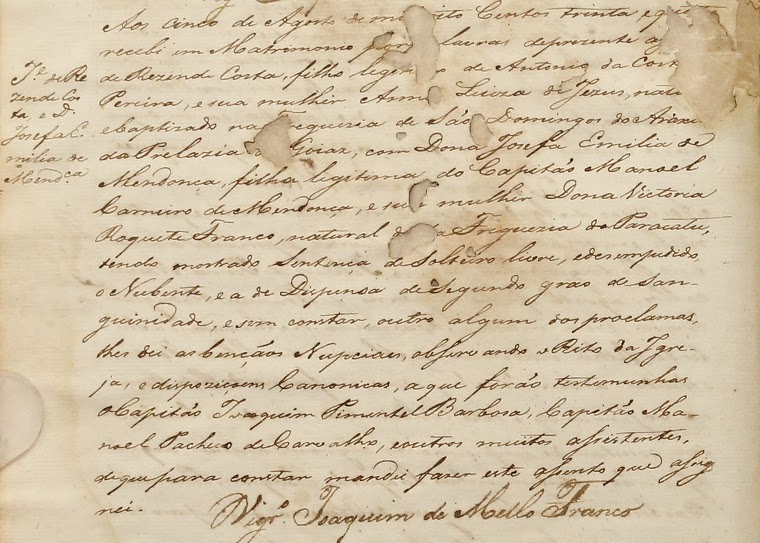 Aos cinco de Agosto de mil oito Centos trinta e
recebi em Matrimonio por palavras de presente
de Rezende Costa, filho legitimo de Antonio da Costa
Pereira, e sua mulher Anna Luiza de Jezus, natural
e baptizado na Freguezia de São Domingos do Araxá
da Prelazia de Goiaz, com Dona Josefa Emilia de
Mendonca, filha legitima do Capitão Manoel
Carneiro de Mendonça, e sua mulher Dona Victoria
Roquete Franco, natural desta Freguezia do Paracatu,
tendo mostrado Sentença de Solteiro livre, e desempedido
o Nubente, e a de Dispensa de segundo grao de san-
guinidade, e sem constar, outro algum dos proclamas,
lhes dei as bençãos Nupciaes, observando o Rito da Igre-
ja, e dispoziçoens Canonicas, a que forão testemunhas
o Capitão Joaquim Pimentel Barbosa, Capitão Ma-
noel Pacheco de Carvalho, e outros muitos assistentes,
de que para constar mandei fazer este assento que assig
nei.
Vigrº. Joaquim de Mello Franco
Je. de Re
zende Cos
ta, e D.
Josefa E.
milia de
Mendça